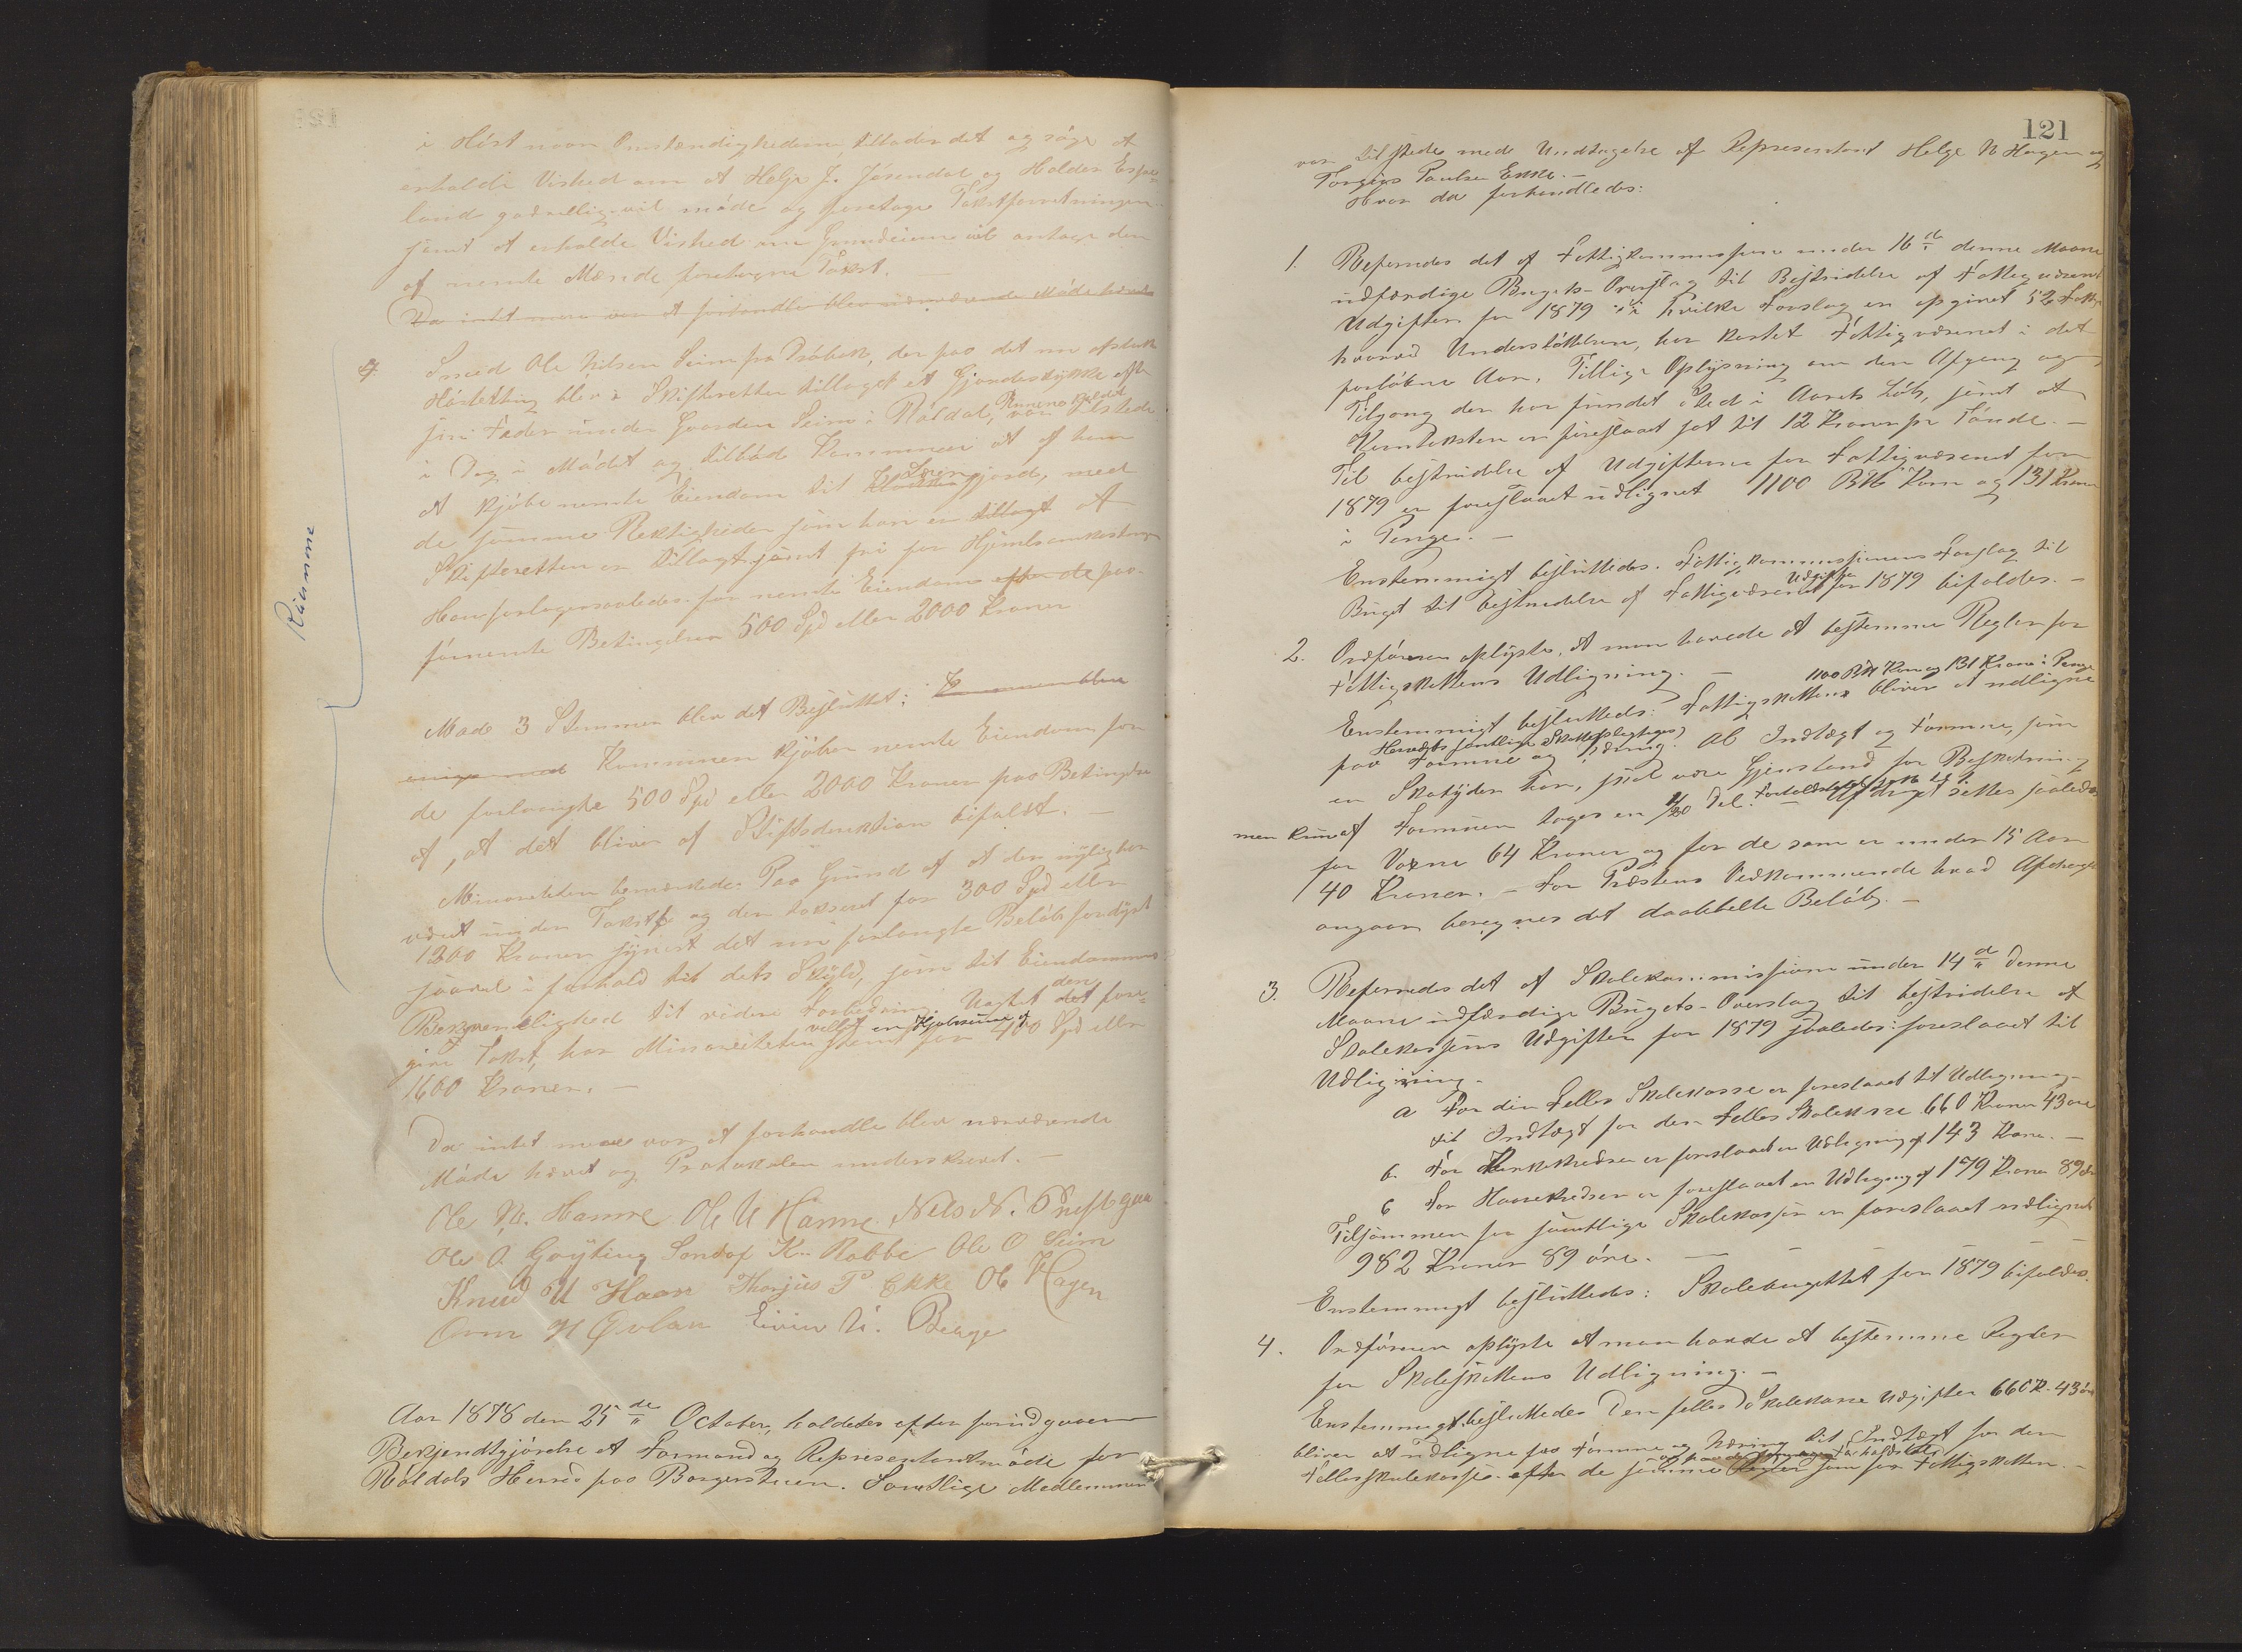 i Höst naar Omstændighederne tillader det og søge at
erholde Vished om at Helje J. Jösendal og Halder Espe-
land godvilligen vil møde og foretage Takstforretningen
samt at erholde Vished om Grundeieren vil antage den
af nemte Mænde foretagne Takst.
Da intet mere var at forhandle blev nærværende Møde hævet
4. Smed Ole Nilsen Seim fra Dröbak, der paa det nu afsluttede
Hösteting blev i Skifteretten tillagt et Gjordestykke efter
sin Fader under Gaarden Seim i Röldal, Rununo kaldet, var tilstede
i Dag i Mødet og tilbød Kommunen at af ham
at kjøbe nemte Eiendom til Lensmansgjord, med
de samme Rettigheder som han er tillagt af
Skifteretten er tillagt samt fri for Hjemlsomkostninger
Han forlanger saaledes for nemte Eiendom efter de paa-
förnemte Betingelser 500 Spd eller 2000 Kroner
Rüünme
Mod 3 Stemmer blev det Besluttet: Kommunen blev
enige med Kommunen kjöber nemte Eiendom for
de forlangte 500 Spd eller 2000 Kroner paa Betingelse
af, at det bliver af Stiftsdirektion bifalst. —
Minoriteten bemærkede: Paa Grund af at den nylig har
været under Takst og den takseret for 300 Spd eller
1200 Kroner synest det nu forlangte Beløb fordyrt
saavel i forhold til dets Skyld, som til Eiendommens
Bekvemelighed til videre Forbedring. Uagtet den det fore-
givne Takst, har Minoriteten stemt for villet en Kjøbesum af 400 Spd eller
1600 Kroner. —
Da intet mere var at forhandle blev nærværende
Møde hævet og Protokolen underskrevet. —
Ole N. Hamre Ole U Hamre Nils N. Prestgaa
Ole O. Gryting Sondof K. Rabbe Ole O Seim
Knud U Haare Thorjus P Ekke Ole Hagen
Arne H Øvland Eivin N. Berge
Aar 1878 den 25de October, holdtes efter forudgaaen
Bekjendtgjörelse et Formand og Representantmöde for
Röldals Herred paa Borgerstuen. Samtlige Medlemmer
121
var tilstede med Undtagelse af Representant Helge N Hagen og
Torgius Paulsen Ekke. —
Hvor da forhandledes:
1. Refereredes det af Fattigkommissionen under 16de denne Maane
udfærdige Bugets-Overslag til Bestridelse af Fattigvæsenets
Udgifter for 1879 i hvilke Forslag er opgivet 52 Fattige
hvorved Understöttelsen, har kostet Fattigvæsenet i det
forløbne Aar. Tillige Oplysning om den Afgang og
Tilgang der har fundet Sted i Aarets Löb, samt at
Korntaksten er foreslaaet sat til 12 Kroner pr Tönde. —
Til bestridelse af Udgifterne for Fattigvæsenet for
1879 er foreslaaet udlignet 1100 B℔ Korn og 131 Kroner
i Penge. —
Enstemmigt besluttedes. Fattigkommissionens Forslag til
Buget til bestridelse af Fattigvæsenet Udgifter for 1879 bifaldes. —
2. Ordföreren oplyste, at man havde at bestemme Regler for
Fattigskattens Udligning. —
Enstemmigt besluttedes: Fattigskattens 1100 B℔ Korn og 131 Kroner i Penge bliver at udligne
paa Herredets samtlige Skattepligtiges Formue og Næring. Al Indtægt og Formue, som
en Skatyder har, skal være Gjenstand for Beskatning
men kun af Formuen tages en 1/20 Del. — Fradraget settes saaledes
for Voxne 64 Kroner og for de som er under 15 Aar
40 Kroner. — For Præstens Vedkommende hvad Afdraget
angaar beregnes det dobbelte Beløb. —
3. Refereredes det af Skolekommissionen under 14de denne
Maane udfærdige Bugets-Overslag til bestridelse af
Skolekassens Udgifter for 1879 saaledes: foreslaaet til
Udligning. —
a For den Felles Skolekasse er foreslaaet til Udligning
til Indtægt for den Felles Skolekasse 660 Kroner 43 öre
b. For Kirkekredsen er foreslaaet en Udligning af 143 Krone. —
c For Haarekredsen er foreslaaet en Udligning af 179 Kroner 89 öre
Tilsammen for samtlige Skolekasser er foreslaaet udlignet
982 Kroner 89 öre. —
Enstemmigt besluttedes: Skolebugettet for 1879 bifaldes.
4. Ordföreren oplyste at man havde at bestemme Regler
for Skoleskattens Udligning. —
Enstemmigt besluttedes Den felles Skolekasse Udgifter 660 K. 43 öre
bliver at udligne paa Formue og Næring til Indtægt for den
Fellesskolekasse efter de samme Regler som for Fattigskatten. —